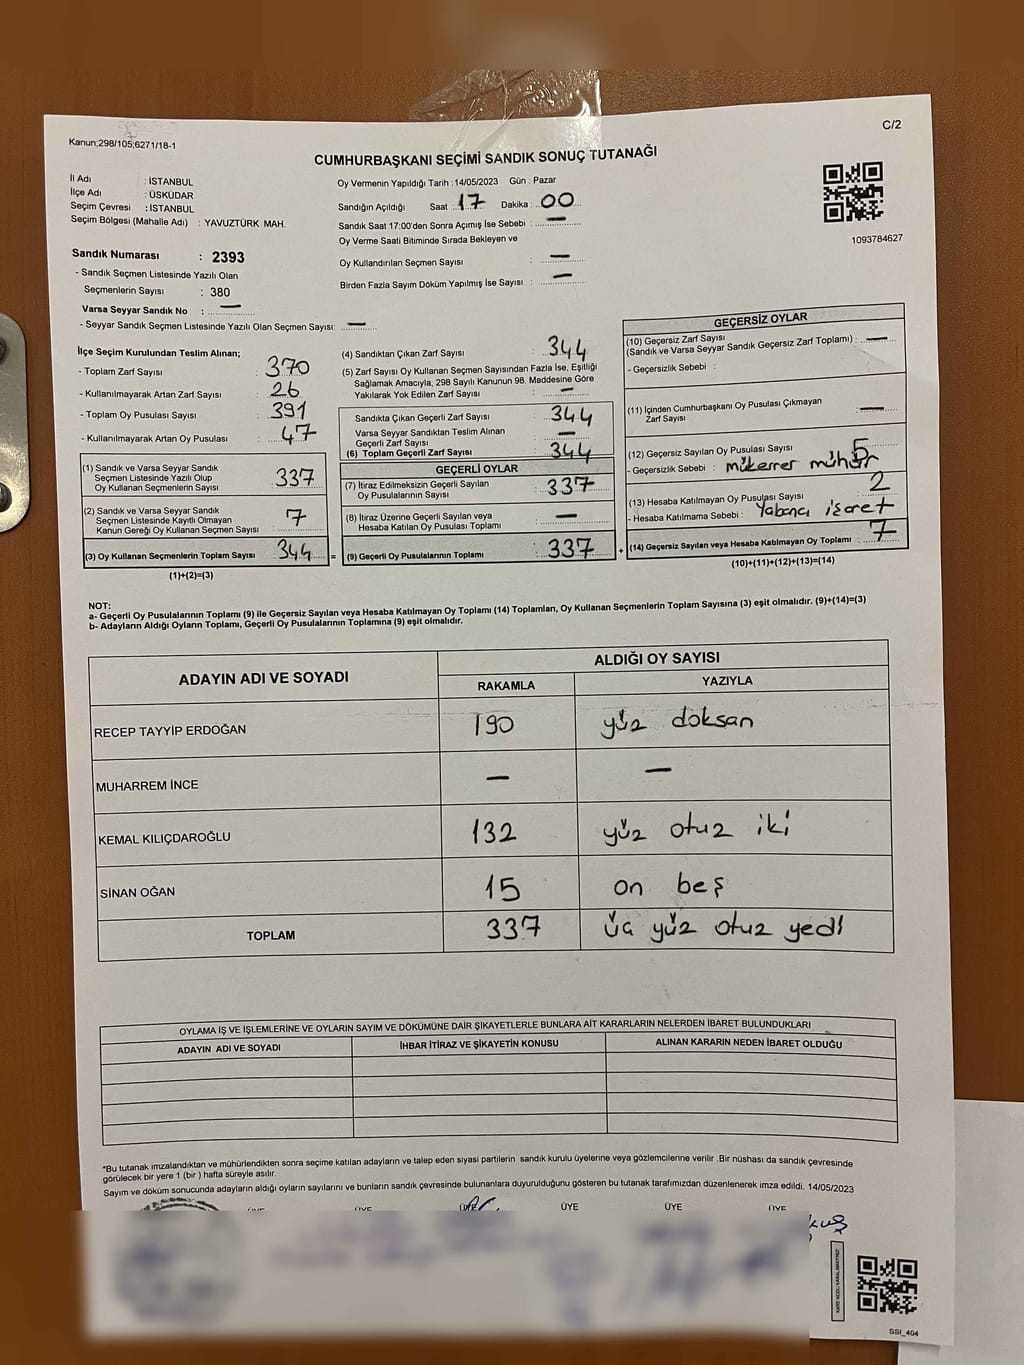 C/2
Kanun;298/105;6271/18-1
CUMHURBAŞKANI SEÇİMİ SANDIK SONUÇ TUTANAĞI
İl Adı : İSTANBUL
İlçe Adı : ÜSKÜDAR
Seçim Çevresi : İSTANBUL
Seçim Bölgesi (Mahalle Adı) : YAVUZTÜRK MAH.
Sandık Numarası : 2393
- Sandık Seçmen Listesinde Yazılı Olan
Seçmenlerin Sayısı : 380
Varsa Seyyar Sandık No : —
- Seyyar Sandık Seçmen Listesinde Yazılı Olan Seçmen Sayısı: —
Oy Vermenin Yapıldığı Tarih :14/05/2023 Gün : Pazar
Sandığın Açıldığı Saat : 17 Dakika : 00
Sandık Saat 17:00'den Sonra Açımış İse Sebebi : —
Oy Verme Saati Bitiminde Sırada Bekleyen ve
Oy Kullandırılan Seçmen Sayısı : —
Birden Fazla Sayım Döküm Yapılmış İse Sayısı : —
1093784627
İlçe Seçim Kurulundan Teslim Alınan;
- Toplam Zarf Sayısı : 370
- Kullanılmayarak Artan Zarf Sayısı : 26
- Toplam Oy Pusulası Sayısı : 391
- Kullanılmayarak Artan Oy Pusulası : 47
(1) Sandık ve Varsa Seyyar Sandık
Seçmen Listesinde Yazılı Olup
Oy Kullanan Seçmenlerin Sayısı : 337
(2) Sandık ve Varsa Seyyar Sandık
Seçmen Listesinde Kayıtlı Olmayan
Kanun Gereği Oy Kullanan Seçmen Sayısı : 7
(3) Oy Kullanan Seçmenlerin Toplam Sayısı : 344 =
(1)+(2)=(3)
(4) Sandıktan Çıkan Zarf Sayısı : 344
(5) Zarf Sayısı Oy Kullanan Seçmen Sayısından Fazla İse, Eşitliği
Sağlamak Amacıyla; 298 Sayılı Kanunun 98. Maddesine Göre
Yakılarak Yok Edilen Zarf Sayısı : —
Sandıkta Çıkan Geçerli Zarf Sayısı : 344
Varsa Seyyar Sandıktan Teslim Alınan
Geçerli Zarf Sayısı : —
(6) Toplam Geçerli Zarf Sayısı : 344
GEÇERLİ OYLAR
(7) İtiraz Edilmeksizin Geçerli Sayılan
Oy Pusulalarının Sayısı : 337
(8) İtiraz Üzerine Geçerli Sayılan veya
Hesaba Katılan Oy Pusulası Toplamı : —
(9) Geçerli Oy Pusulalarının Toplamı : 337 +
GEÇERSİZ OYLAR
(10) Geçersiz Zarf Sayısı
(Sandık ve Varsa Seyyar Sandık Geçersiz Zarf Toplamı) : —
- Geçersizlik Sebebi :
(11) İçinden Cumhurbaşkanı Oy Pusulası Çıkmayan
Zarf Sayısı : —
(12) Geçersiz Sayılan Oy Pusulası Sayısı : 5
- Geçersizlik Sebebi : mükerrer mühür
(13) Hesaba Katılmayan Oy Pusulası Sayısı : 2
- Hesaba Katılmama Sebebi : Yabancı işaret
(14) Geçersiz Sayılan veya Hesaba Katılmayan Oy Toplamı : 7
(10)+(11)+(12)+(13)=(14)
NOT:
a- Geçerli Oy Pusulalarının Toplamı (9) ile Geçersiz Sayılan veya Hesaba Katılmayan Oy Toplamı (14) Toplamları, Oy Kullanan Seçmenlerin Toplam Sayısına (3) eşit olmalıdır. (9)+(14)=(3)
b- Adayların Aldığı Oyların Toplamı, Geçerli Oy Pusulalarının Toplamına (9) eşit olmalıdır.
ADAYIN ADI VE SOYADI ALDIĞI OY SAYISI
RAKAMLA YAZIYLA
RECEP TAYYİP ERDOĞAN 190 yüz doksan
MUHARREM İNCE — —
KEMAL KILIÇDAROĞLU 132 yüz otuz iki
SİNAN OĞAN 15 on beş
TOPLAM 337 üç yüz otuz yedi
OYLAMA İŞ VE İŞLEMLERİNE VE OYLARIN SAYIM VE DÖKÜMÜNE DAİR ŞİKAYETLERLE BUNLARA AİT KARARLARIN NELERDEN İBARET BULUNDUKLARI
ADAYIN ADI VE SOYADI İHBAR İTİRAZ VE ŞİKAYETİN KONUSU ALINAN KARARIN NEDEN İBARET OLDUĞU
*Bu tutanak imzalandıktan ve mühürlendikten sonra seçime katılan adayların ve talep eden siyasi partilerin sandık kurulu üyelerine veya gözlemcilerine verilir .Bir nüshası da sandık çevresinde
görülecek bir yere 1 (bir ) hafta süreyle asılır.
Sayım ve döküm sonucunda adayların aldığı oyların sayılarını ve bunların sandık çevresinde bulunanlara duyurulduğunu gösteren bu tutanak tarafımızdan düzenlenerek imza edildi. 14/05/2023
ÜYE ÜYE ÜYE ÜYE ÜYE ÜYE
SSI_404